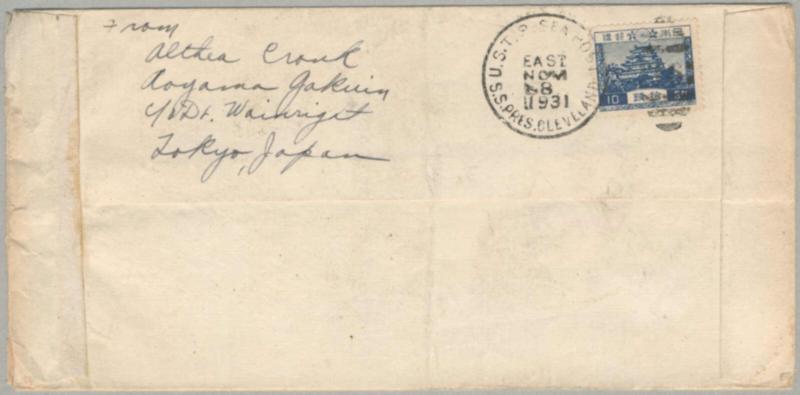 From
Althea Cronk
Aoyama Gakuin
c/o Dr. Wainright
Tokyo, Japan
U.S.T.P. SEA POST
EAST
NOV
8
1931
S.S. PRES. CLEVELAND
10